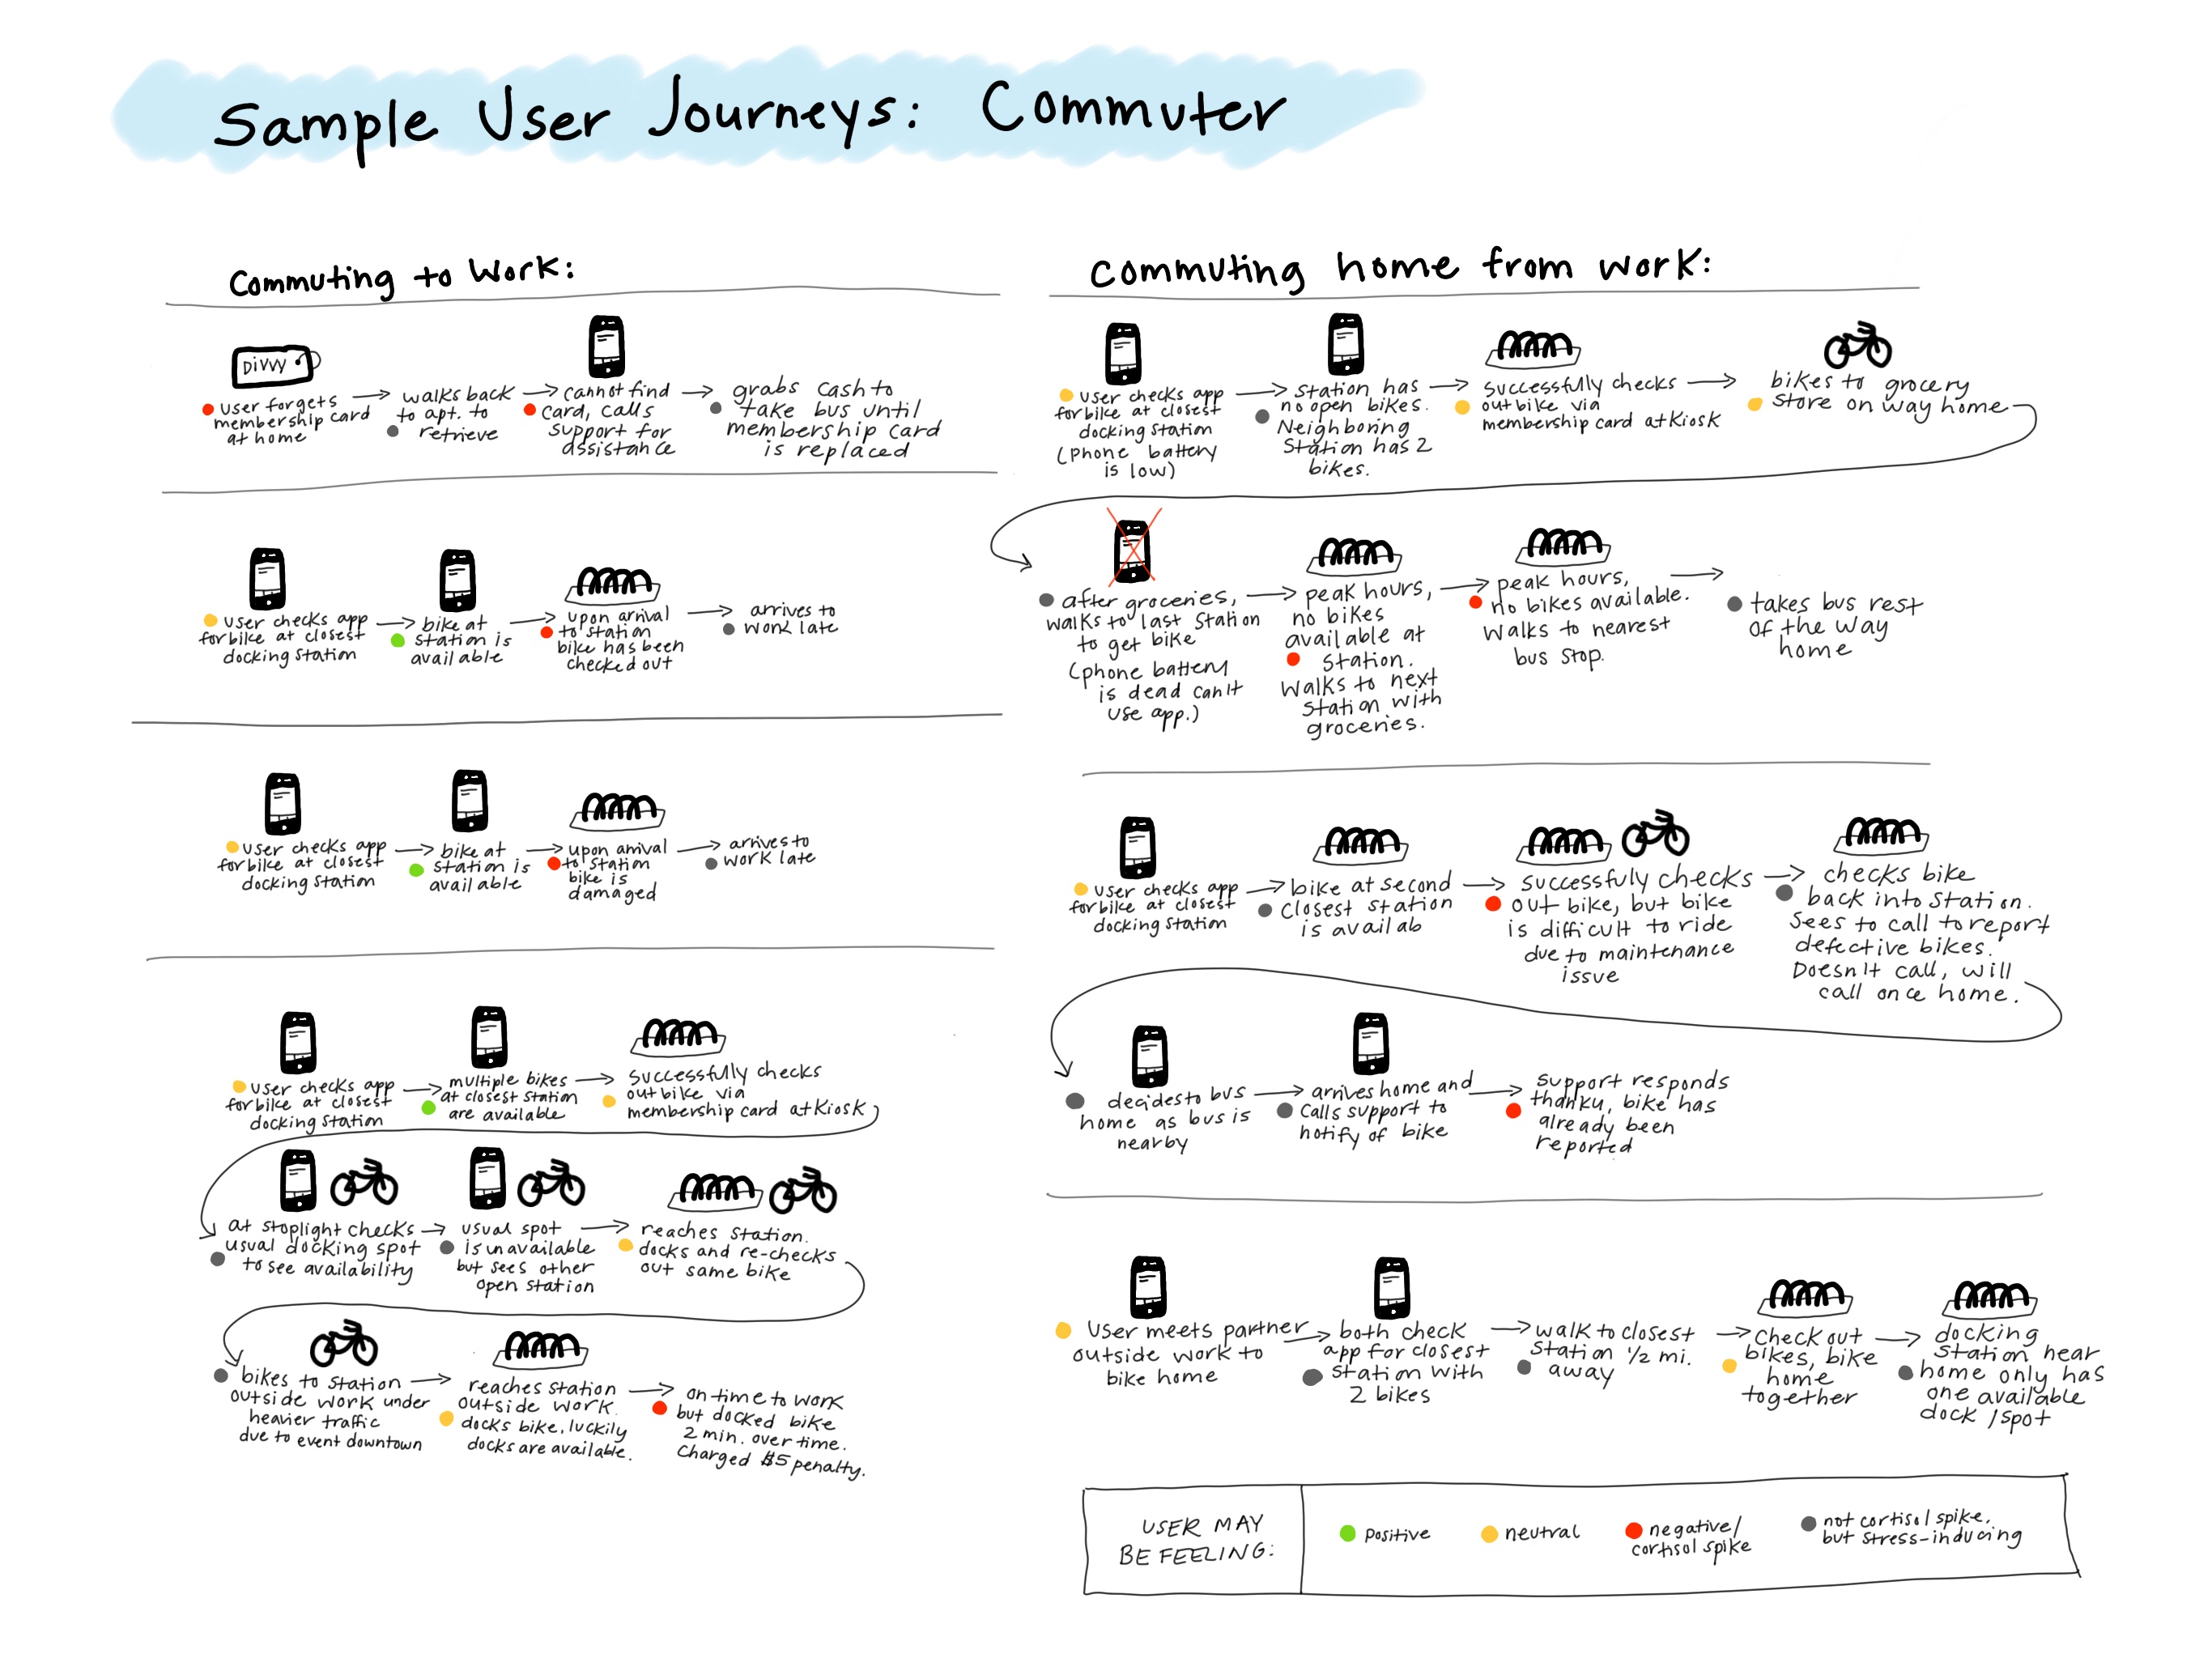 Sample User Journeys: Commuter
Commuting to Work:
DIVVY
user forgets
membership card
at home
walks back
to apt. to
retrieve
cannot find
card, calls
support for
assistance
grabs cash to
take bus until
membership card
is replaced
user checks app
for bike at closest
docking station
bike at
station is
available
upon arrival
to station
bike has been
checked out
arrives to
work late
user checks app
for bike at closest
docking station
bike at
station is
available
upon arrival
to station
bike is
damaged
arrives to
work late
user checks app
for bike at closest
docking station
multiple bikes
at closest station
are available
successfully checks
out bike via
membership card at Kiosk
at stoplight checks
usual docking spot
to see availability
usual spot
is unavailable
but sees other
open station
reaches station.
docks and re-checks
out same bike
bikes to station
outside work under
heavier traffic
due to event downtown
reaches station
outside work.
docks bike, luckily
docks are available.
on time to work
but docked bike
2 min. over time.
Charged $5 penalty.
Commuting home from work:
user checks app
for bike at closest
docking station
(phone battery
is low)
station has
no open bikes.
Neighboring
Station has 2
bikes.
successfully checks
out bike via
membership card at Kiosk
bikes to grocery
store on way home
after groceries,
walks to last station
to get bike
(phone battery
is dead can't
use app.)
peak hours,
no bikes
available at
station.
Walks to next
station with
groceries.
peak hours,
no bikes available.
Walks to nearest
bus stop.
takes bus rest
of the way
home
user checks app
for bike at closest
docking station
bike at second
closest station
is availab
successfuly checks
out bike, but bike
is difficult to ride
due to maintenance
issue
checks bike
back into station.
Sees to call to report
defective bikes.
Doesn't call, will
call once home.
decides to bus
home as bus is
nearby
arrives home and
calls support to
notify of bike
support responds
thanku, bike has
already been
reported
User meets partner
outside work to
bike home
both check
app for closest
station with
2 bikes
walk to closest
station 1/2 mi.
away
check out
bikes, bike
home
together
docking
station near
home only has
one available
dock / spot
USER MAY
BE FEELING:
positive
neutral
negative/
cortisol spike
not cortisol spike,
but stress-inducing